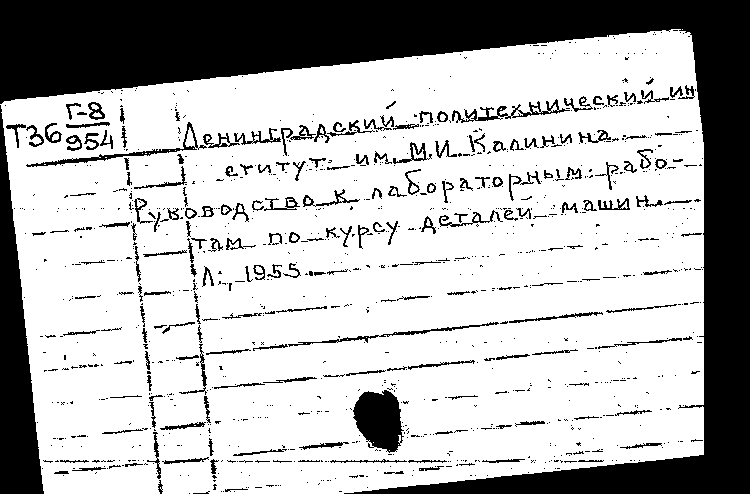 Г-8
Т36 954
Ленинградский политехнический ин
ститут им. М.И Калинина
Руководство к лабораторным рабо-
там по курсу деталей машин.
Л:, 1955